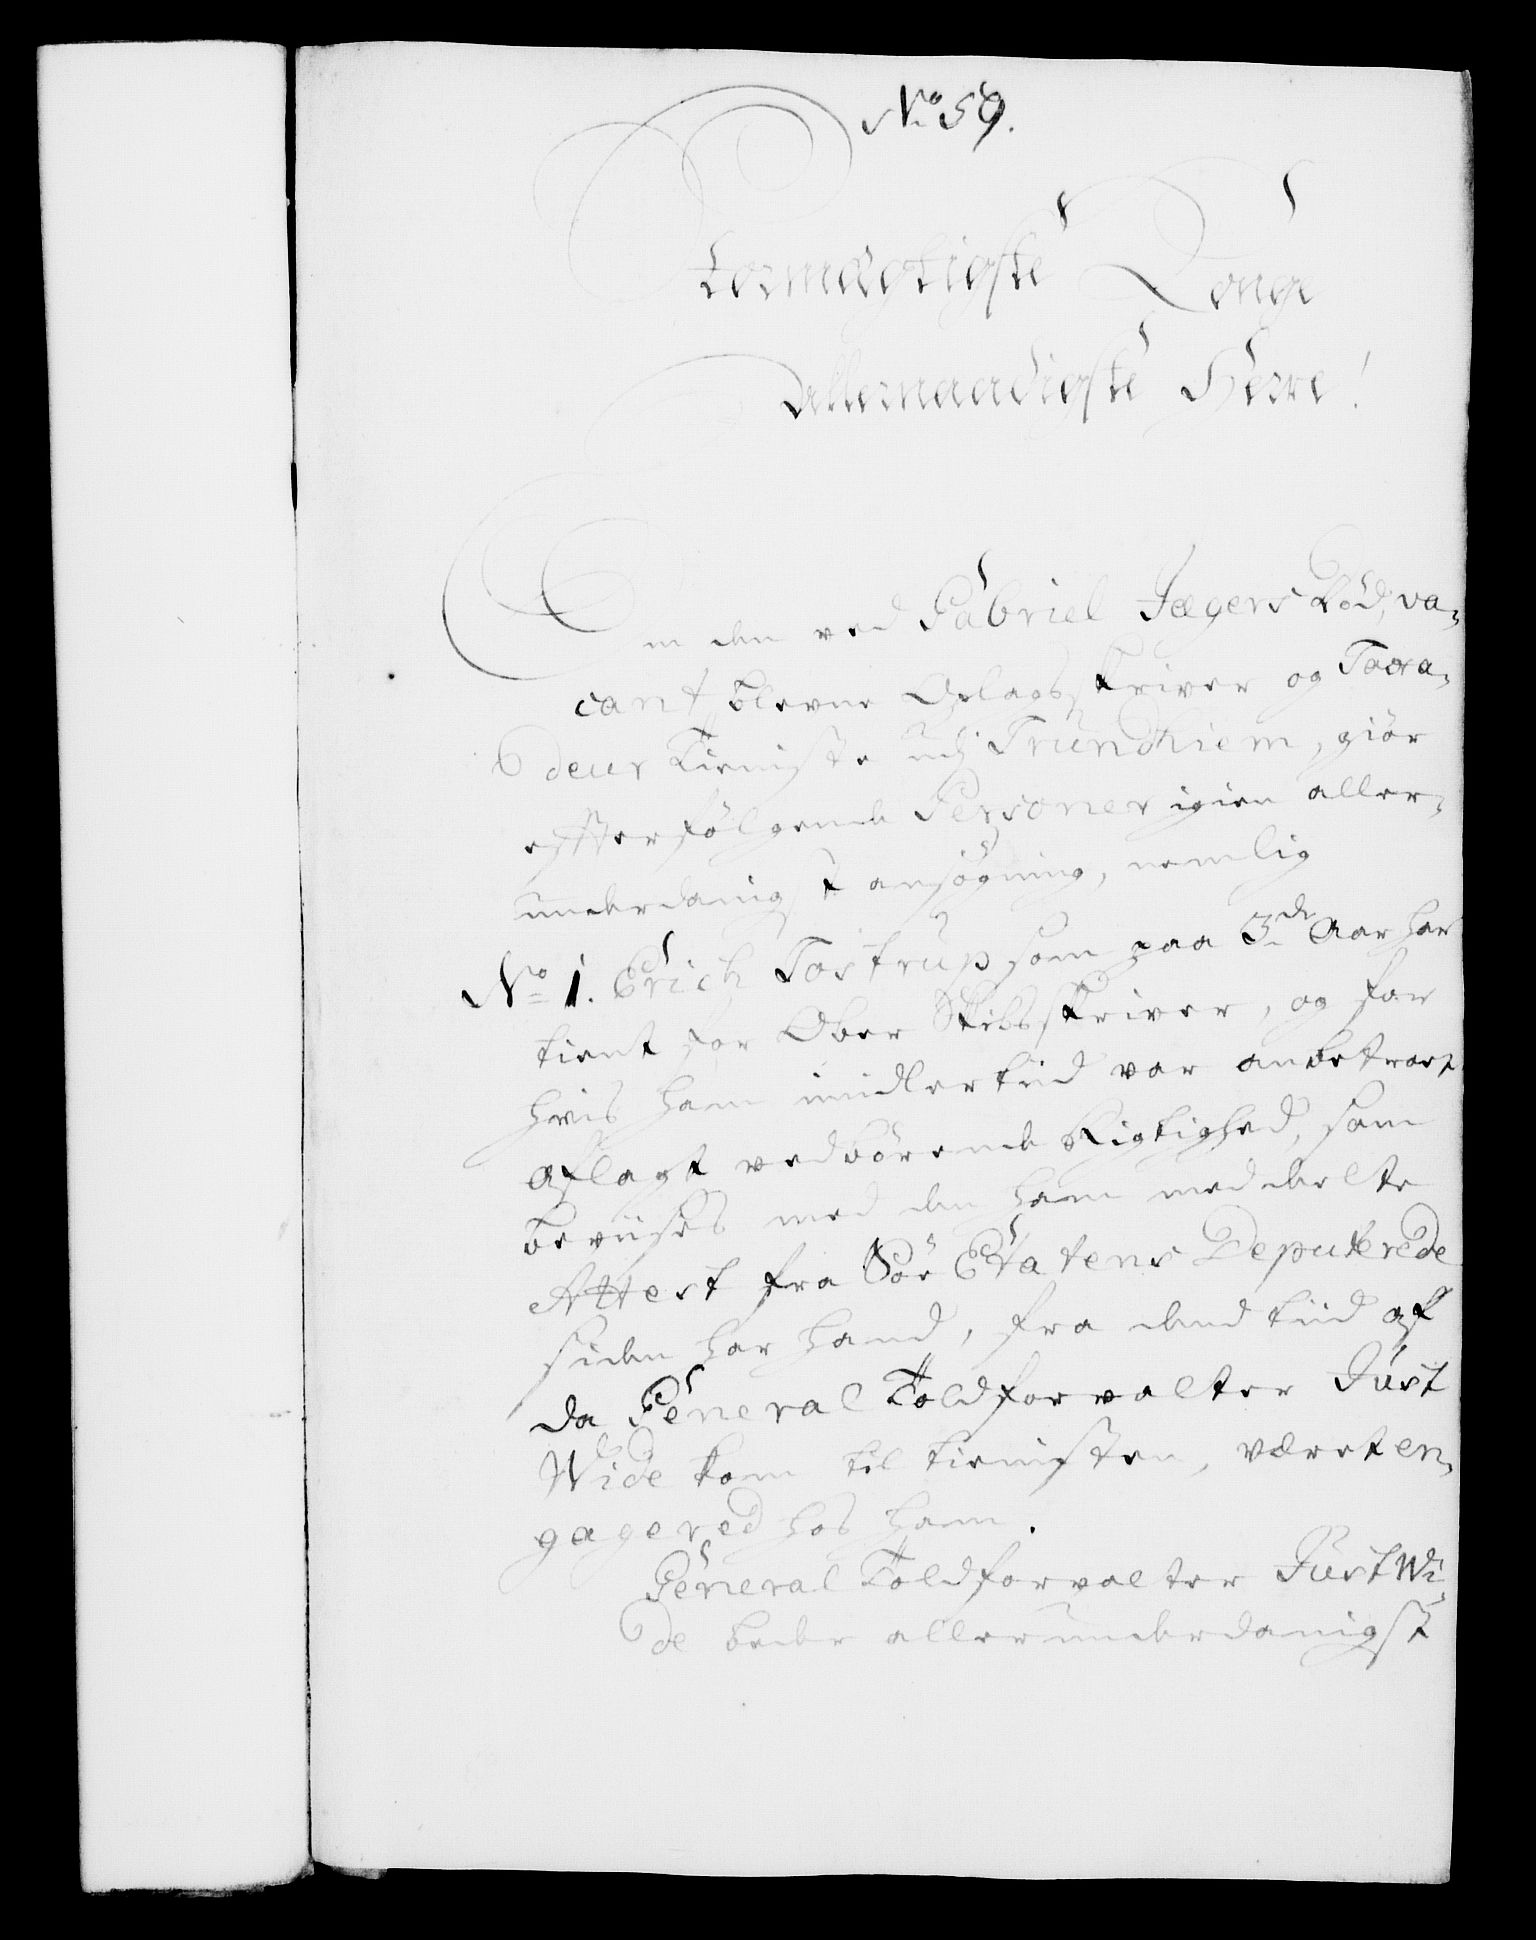 No 59.
Stormægtigste Konge
Allernaadigste Herre!
Om den ved Gabriel Jægers død, va-
cant blevne Oplagsskriver og Taxa-
deur Tieniste udj Trundhiem, giör
efterfölgende Personer igien aller-
underdanigst ansøgning, nemlig
No 1. Erich Tostrup som paa 3de Aar har
tient for Ober Skibsskriver, og for
hvis ham imidlertid var anbetroet
aflagt vedbörende Rigtighed, som
beviises med den ham meddeelte
Attest fra Söe Etatens Deputerede
siden har hand, fra dend tiid af
da General Toldforvalter Just
Wide kom til tienisten, været en-
gagered hos ham.
General Toldforvalter Just Wi-
de beder allerunderdanigst